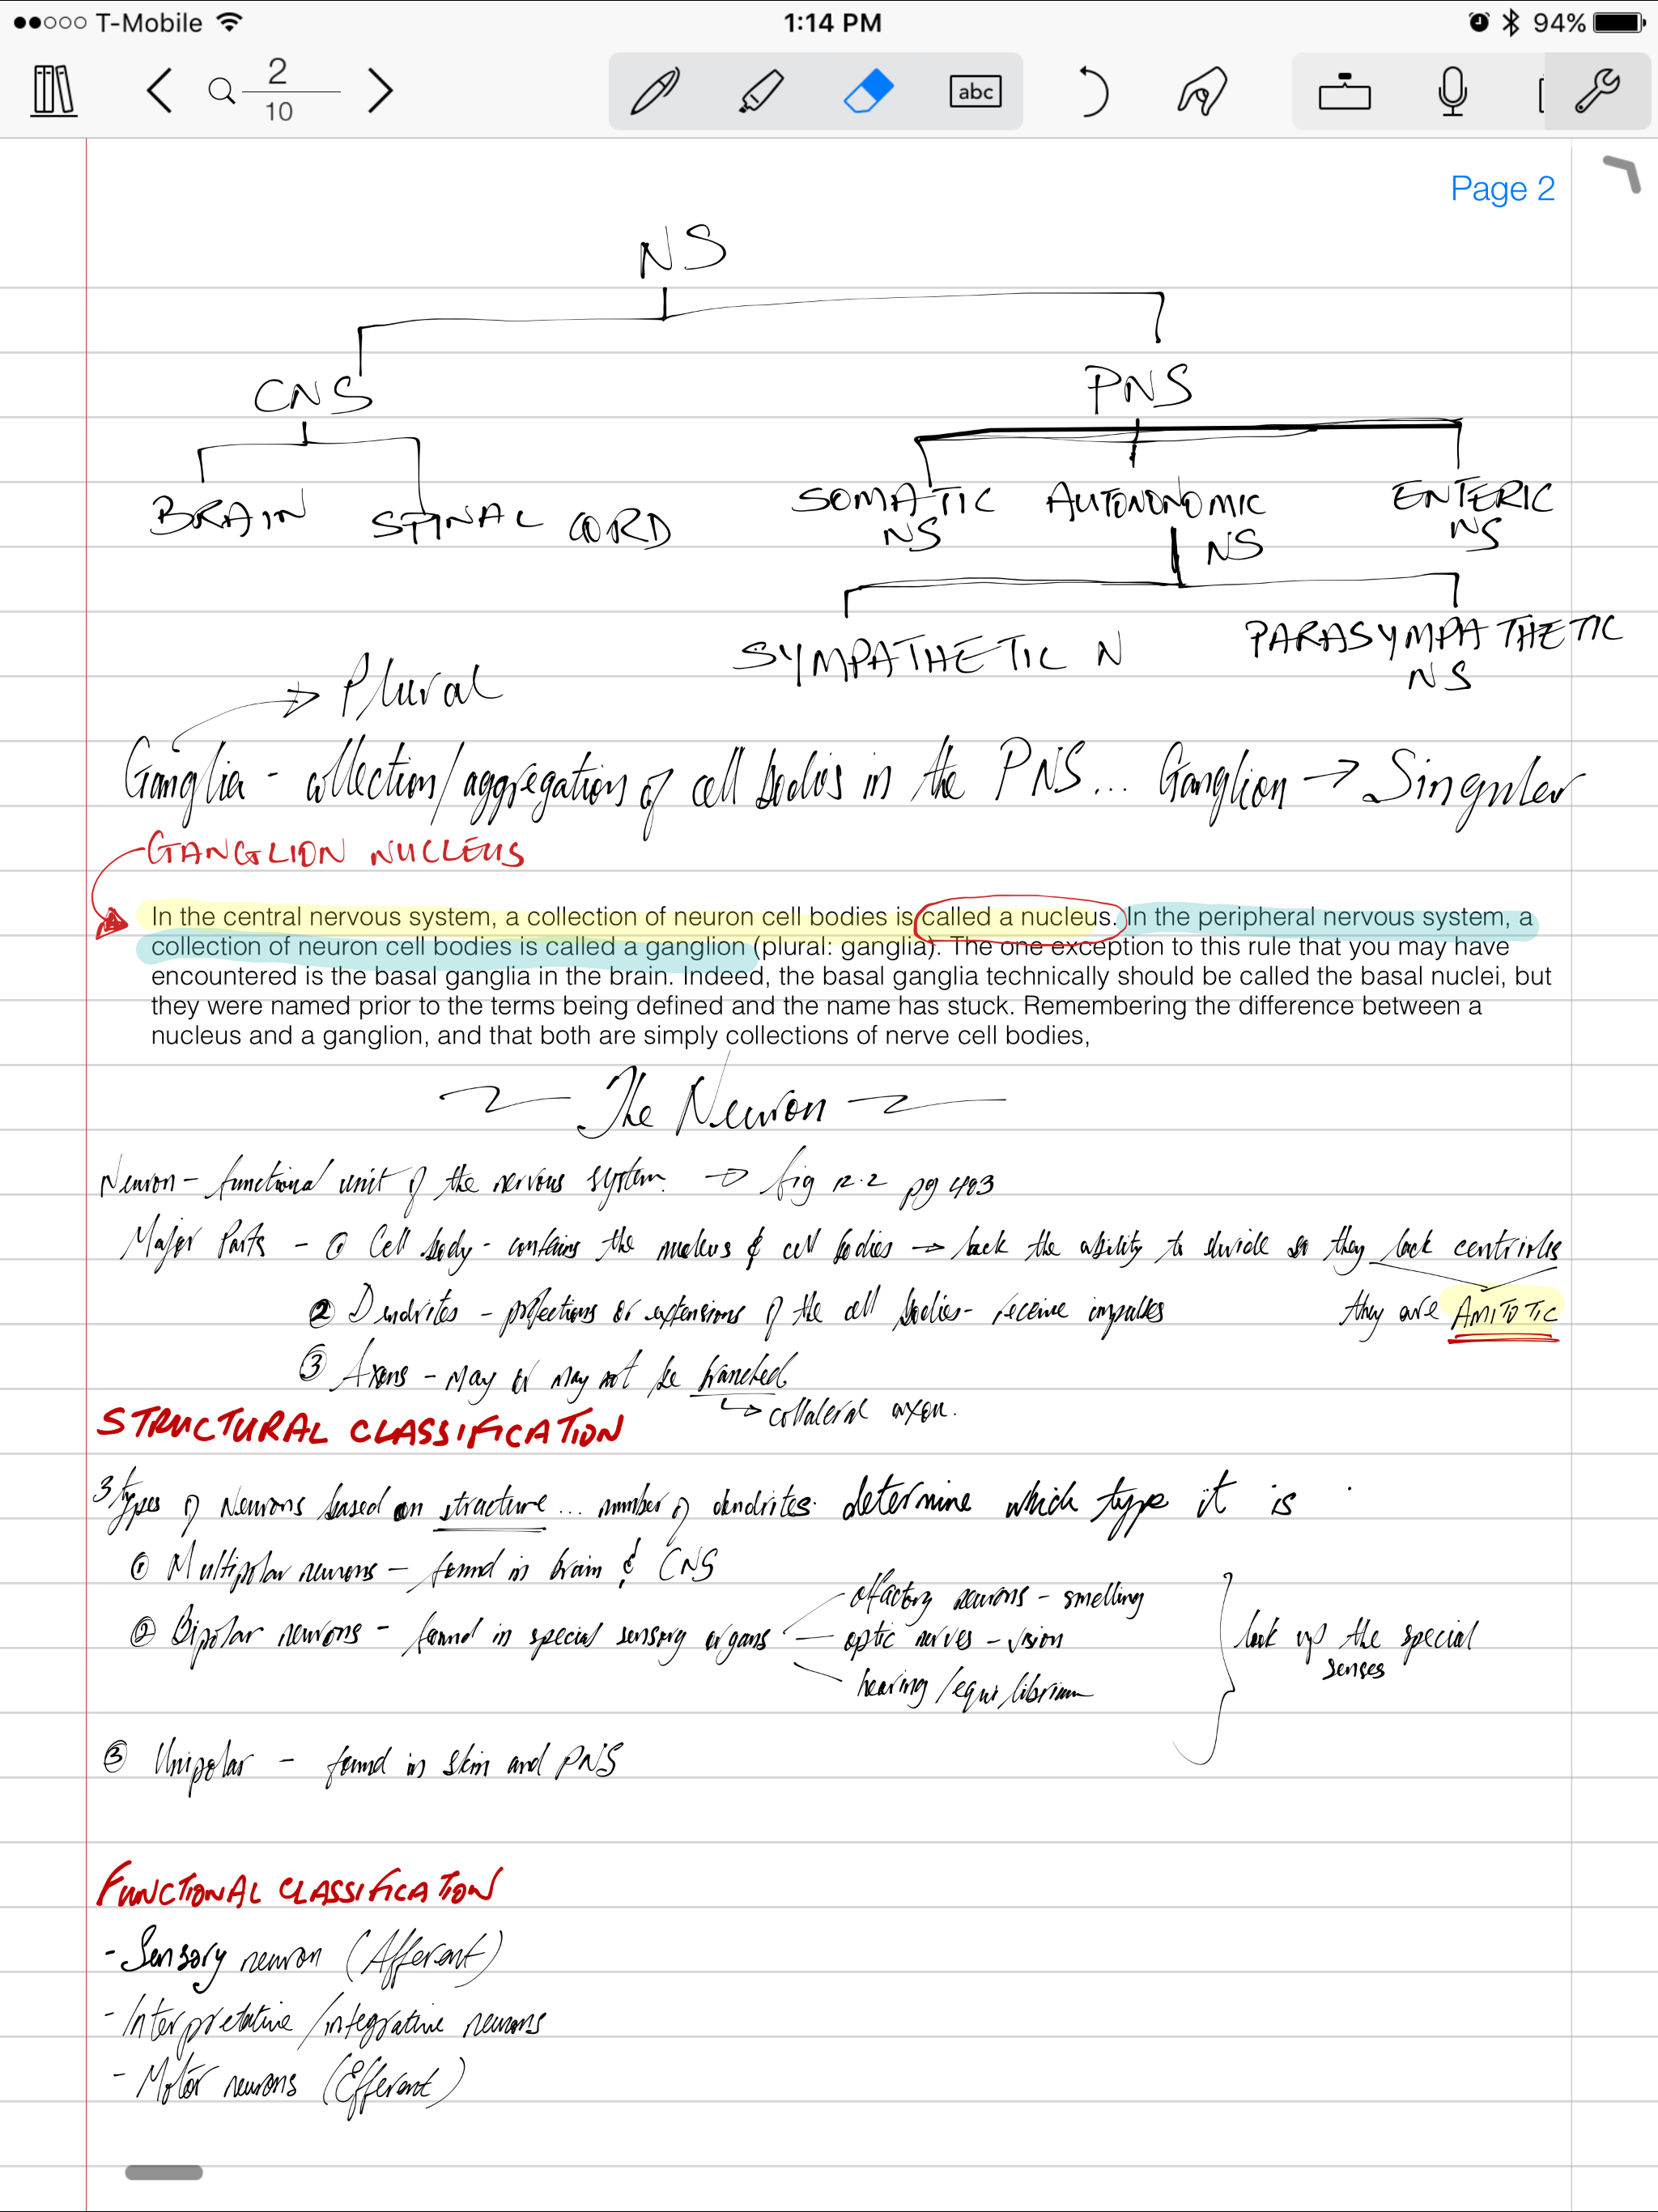 T-Mobile 1:14 PM 94%
2
10
abc
Page 2
NS
CNS PNS
BRAIN SPINAL CORD SOMATIC NS AUTONONOMIC NS ENTERIC NS
SYMPATHETIC N PARASYMPATHETIC NS
Plural
Ganglia - collection/aggregation of cell bodies in the PNS... Ganglion → Singular
GANGLION NUCLEUS
In the central nervous system, a collection of neuron cell bodies is called a nucleus. In the peripheral nervous system, a
collection of neuron cell bodies is called a ganglion (plural: ganglia). The one exception to this rule that you may have
encountered is the basal ganglia in the brain. Indeed, the basal ganglia technically should be called the basal nuclei, but
they were named prior to the terms being defined and the name has stuck. Remembering the difference between a
nucleus and a ganglion, and that both are simply collections of nerve cell bodies,
The Neuron
Neuron - functional unit of the nervous system. → fig 12.2 pg 403
Major Parts - ① Cell body - contains the nucleus & cell bodies → lack the ability to divide so they lack centrioles
② Dendrites - projections or extensions of the cell bodies - receive impulses they are AMITOTIC
③ Axons - may or may not be branched
↳ collateral axon.
STRUCTURAL CLASSIFICATION
3 types of Neurons based on structure... number of dendrites determine which type it is
① Multipolar neurons - found in brain & CNS
② Bipolar neurons - found in special sensory organs
olfactory neurons - smelling
optic nerves - vision
hearing/equilibrium
look up the special senses
③ Unipolar - found in skin and PNS
FUNCTIONAL CLASSIFICATION
- Sensory neuron (Afferent)
- Interpretative/integrative neurons
- Motor neurons (Efferent)